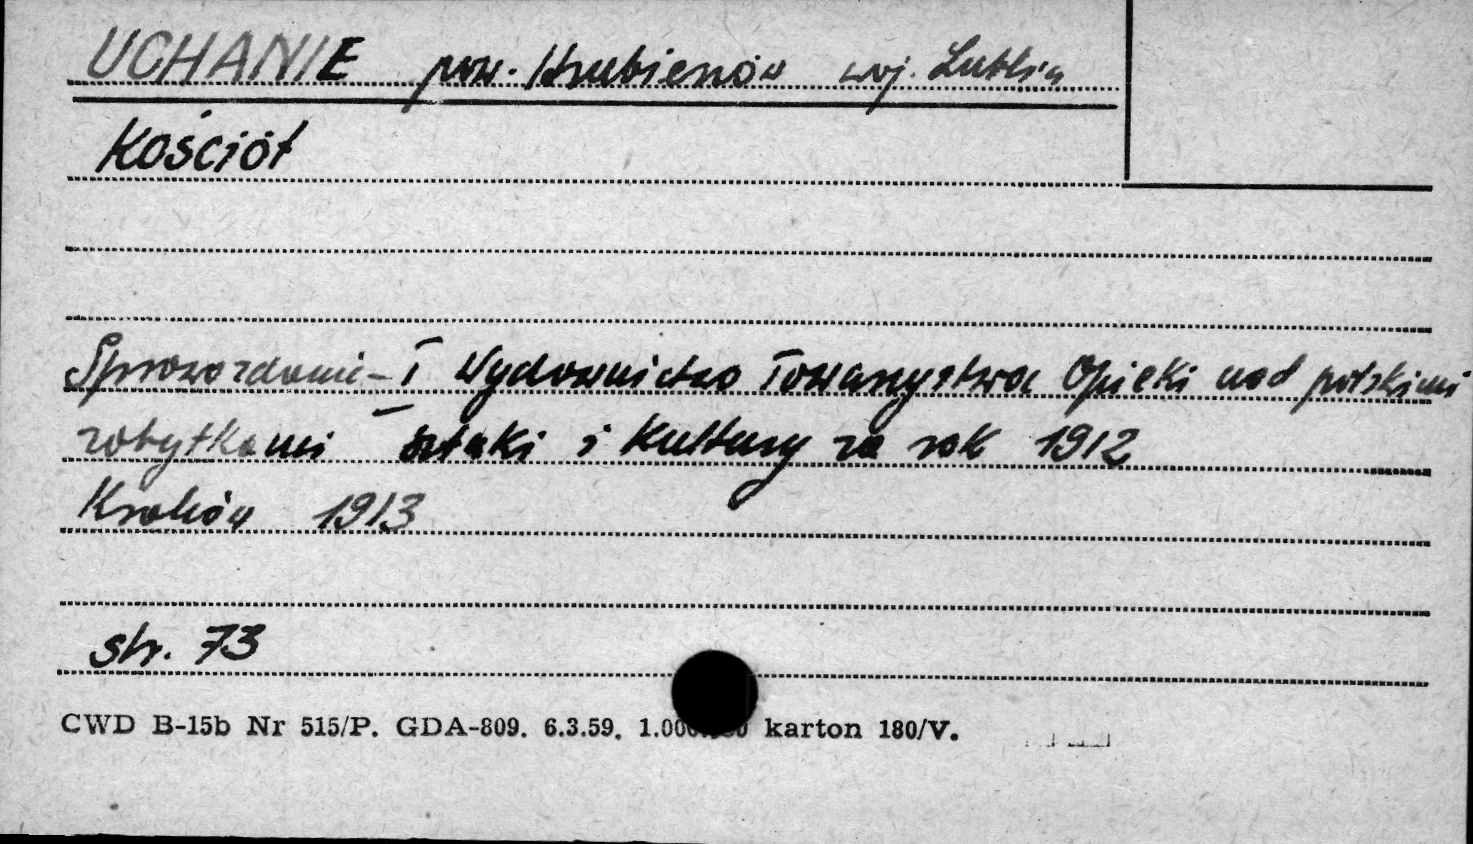 UCHANIE pow. Hrubieszów woj. Lublin
Kościół
Sprawozdanie - I Wydawnictwo Towarzystwa Opieki nad polskimi
zabytkami sztuki i Kultury za rok 1912
Kraków 1913
str. 73
CWD B-15b Nr 515/P. GDA-809. 6.3.59. karton 180/V.